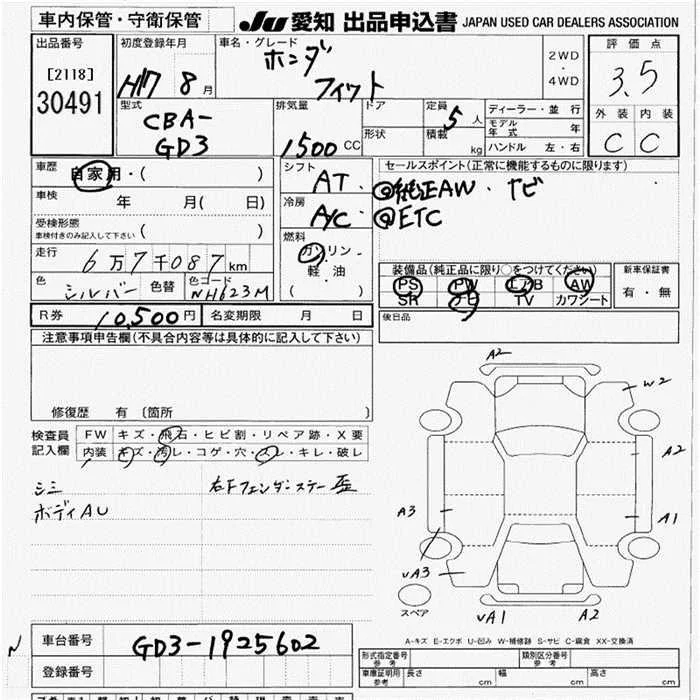 車内保管・守衛保管
JU 愛知 出品申込書 JAPAN USED CAR DEALERS ASSOCIATION
出品番号
[2118]
30491
初度登録年月
H17 8月
車名・グレード
ホンダ
フィット
2WD
・
4WD
評価点
3.5
外装 内装
C C
型式
CBA-
GD3
排気量
1500 CC
ドア
形状
定員
5人
積載
kg
ディーラー・並 行
モデル年式 年
ハンドル 左・右
車歴 自家用・( )
車検 年 月( 日)
受検形態
車検付きのみ記入して下さい ( )
走行 6万7千087km
色 シルバー 色替 色コード NH623M
シフト
AT
冷房
A/C
燃料
ガソリン・
軽油
( )
セールスポイント(正常に機能するものに限ります)
◎純正AW・ナビ
◎ETC
装備品(純正品に限り○をつけてください)
PS PW エアB AW
SR ナビ TV カワシート
新車保証書
有・無
R券 10,500円 名変期限 月 日
後日品
注意事項申告欄(不具合内容等は具体的に記入して下さい)
修復歴 有 〔箇所 〕
検査員
記入欄
FW キズ・飛石・ヒビ割・リペア跡・X要
内装 キズ・汚レ・コゲ・穴・スレ・キレ・破レ
シミ 右Fフェンダーステー歪
ボディAU
A2
W2
A2
A3
A1
vA3
vA1
A2
スペア
A-キズ E-エクボ U-凹み W-補修跡 S-サビ C-腐食 XX-交換済
N
車台番号 GD3-1925602
登録番号
形式指定番号
参考
類別区分番号
参考
車庫証明用
参考
長さ cm 幅 cm 高さ cm